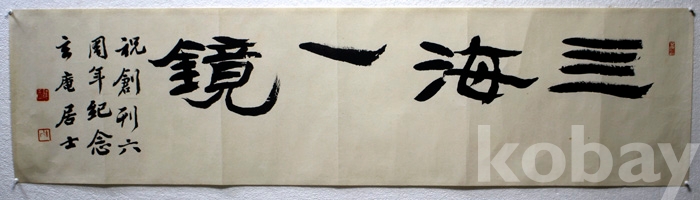 三海一鏡
祝創刊六
周年紀念
玄庵居士
kobay